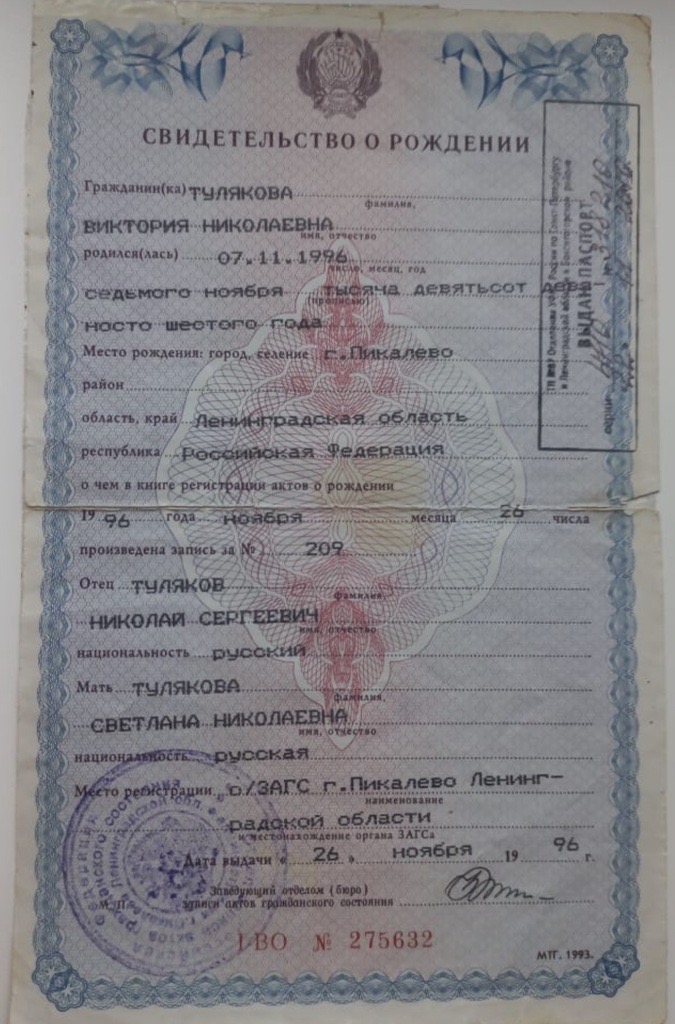 СВИДЕТЕЛЬСТВО О РОЖДЕНИИ
Гражданин(ка) ТУЛЯКОВА
фамилия,
ВИКТОРИЯ НИКОЛАЕВНА
имя, отчество
родился(лась) 07.11.1996
число, месяц, год
седьмого ноября тысяча девятьсот дев
(прописью)
носто шестого года
Место рождения: город, селение г.Пикалево
район
область, край Ленинградская область
республика Российская Федерация
о чем в книге регистрации актов о рождении
19 96 года ноября месяца 26 числа
произведена запись за № 209
Отец ТУЛЯКОВ
фамилия
НИКОЛАЙ СЕРГЕЕВИЧ
имя, отчество
национальность русский
Мать ТУЛЯКОВА
фамилия,
СВЕТЛАНА НИКОЛАЕВНА
имя, отчество
национальность русская
Место регистрации о/ЗАГС г.Пикалево Ленинг-
наименование
радской области
и местонахождение органа ЗАГСа
Дата выдачи « 26 » ноября 19 96 г.
Заведующий отделом (бюро)
М.П. записи актов гражданского состояния
I-ВО № 275632
МТГ. 1993.
ВЫДАН ПАСПОРТ
серии